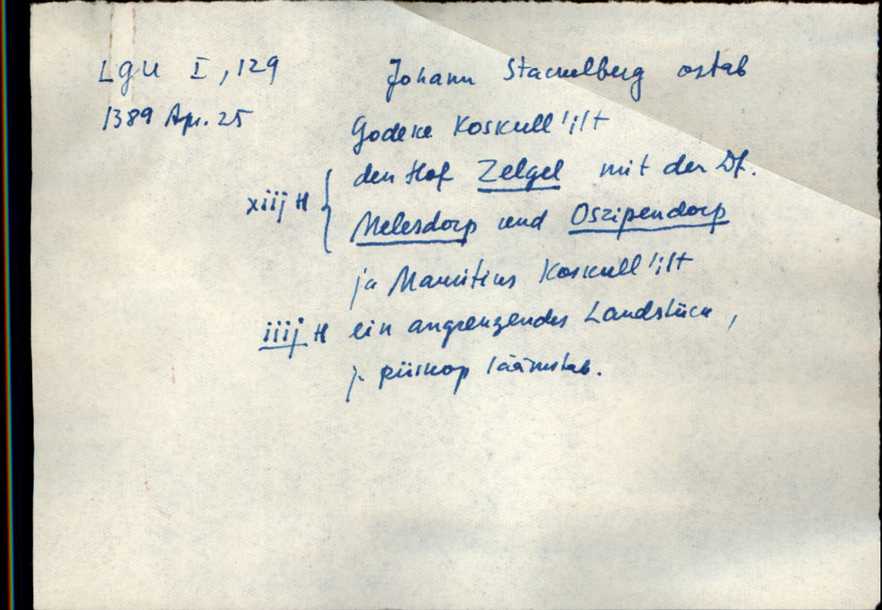 LGU I, 129 Johann Stackelberg ostab
1389 Apr. 25 Godeke Koskull'ilt
den Hof Zelgel mit der Df.
xiij H { Melesdorp und Oszipendorp
ja Mauritius Koskull'ilt
iiij H ein angrenzendes Landstück,
j. piiskop läänistab.